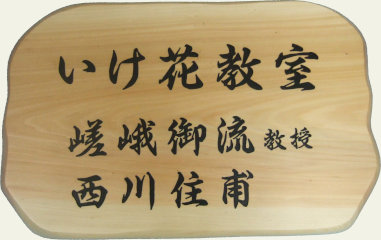 いけ花教室
嵯峨御流教授
西川住甫